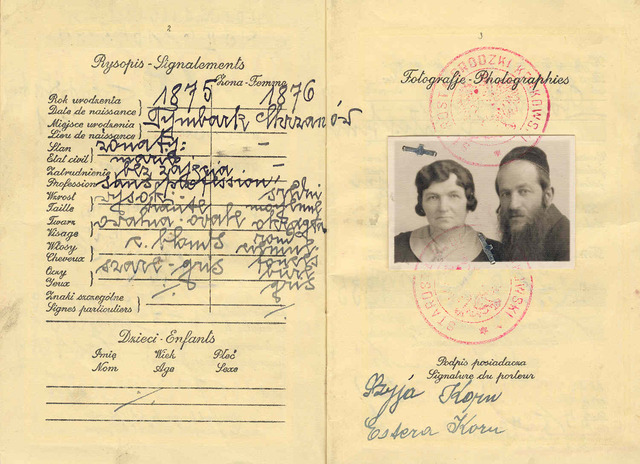 2
Rysopis - Signalements
Żona-Femme
Rok urodzenia 1875 1876
Date de naissance
Miejsce urodzenia Tymbark Chrzanów
Lieu de naissance
Stan żonaty:
Etat civil marié
Zatrudnienie bez zajęcia
Profession sans profession
Wzrost
Taille
Twarz owalna: ovale
Visage
Włosy c. blond
Cheveux
Oczy szare - gris
Yeux gris
Znaki szczególne
Signes particuliers
Dzieci - Enfants
Imię Wiek Płeć
Nom Age Sexe
3
Fotografje - Photographies
Podpis posiadacza
Signature du porteur
Szyja Korn
Estera Korn